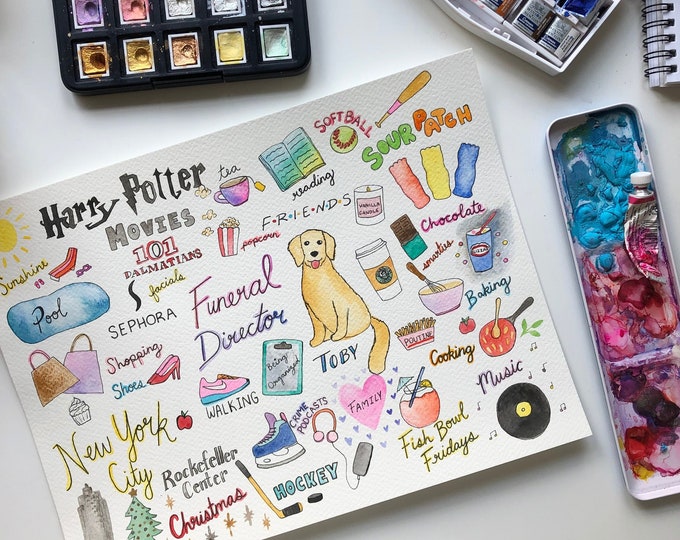 Harry Potter
MOVIES
101
DALMATIANS
tea
reading
SOFTBALL
SOUR PATCH
popcorn
F•R•I•E•N•D•S
VANILLA
CANDLE
Chocolate
smarties
Sunshine
Pool
facials
SEPHORA
Funeral
Director
TOBY
Baking
POUTINE
Cooking
Shopping
Shoes
WALKING
Being
Organized
CRIME
PODCASTS
FAMILY
Music
New York
City
Rockefeller
Center
Christmas
HOCKEY
Fish Bowl
Fridays